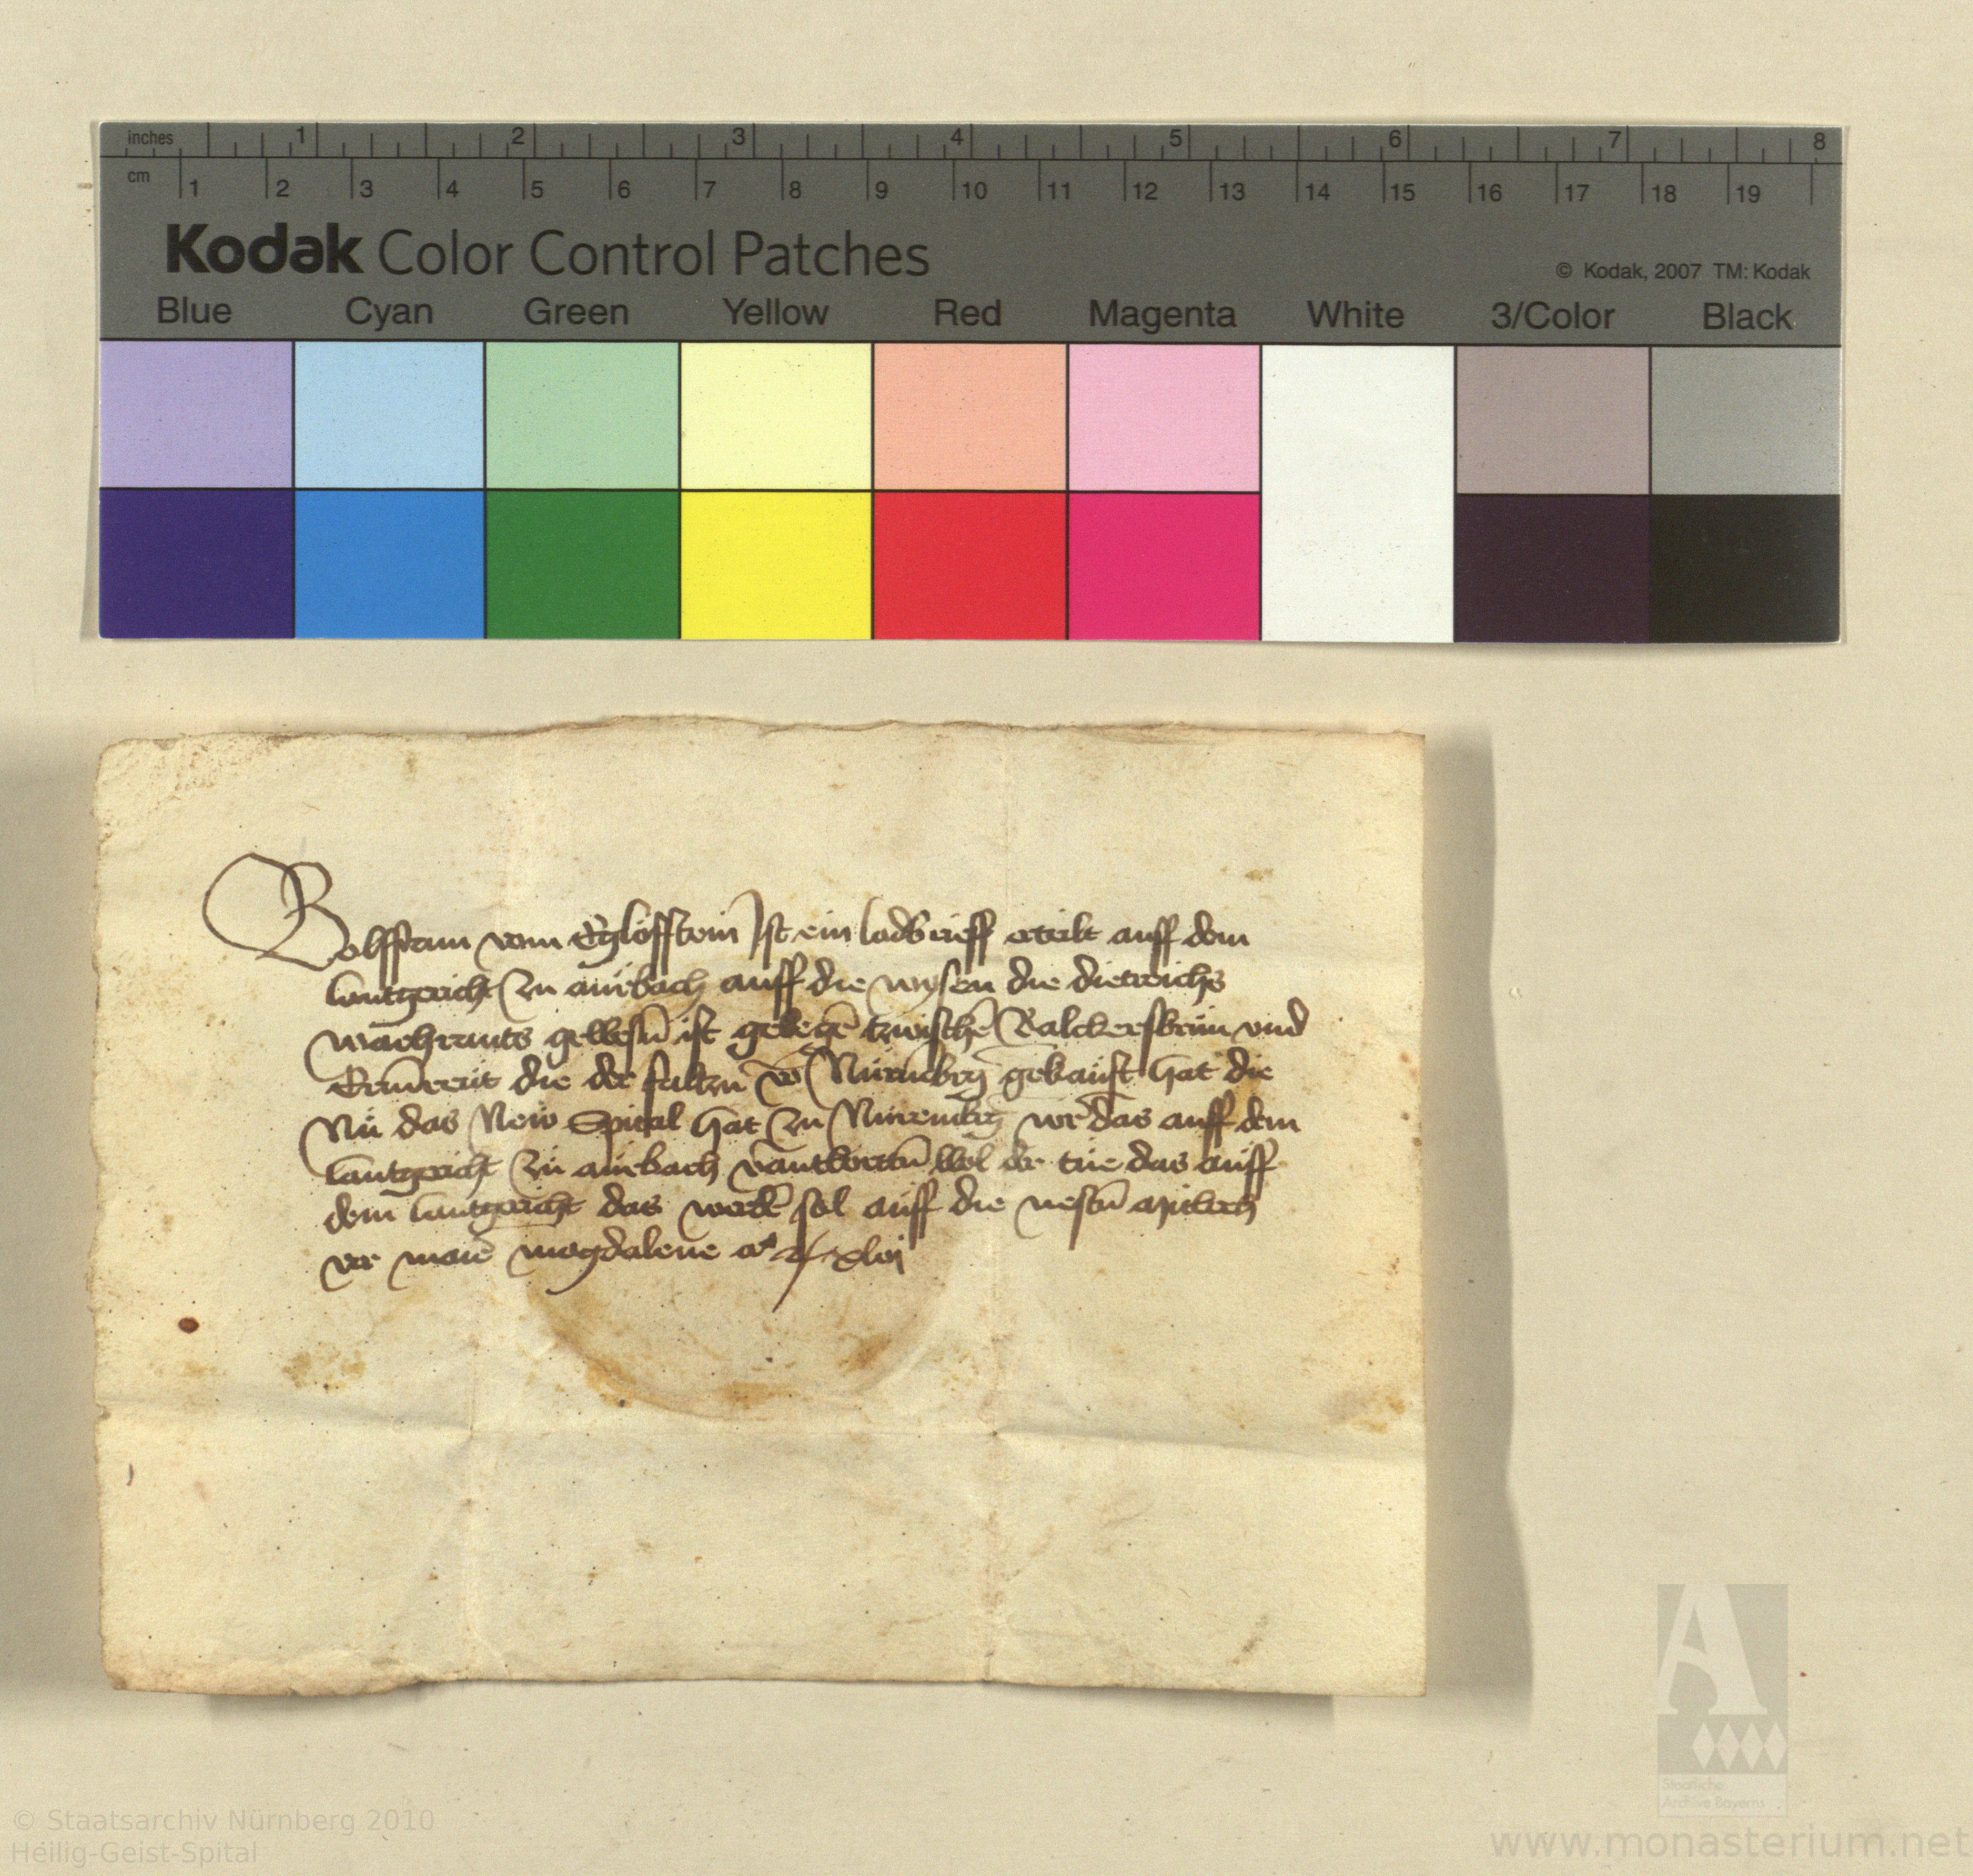 inches 1 2 3 4 5 6 7 8
cm 1 2 3 4 5 6 7 8 9 10 11 12 13 14 15 16 17 18 19
Kodak Color Control Patches
© Kodak, 2007 TM: Kodak
Blue Cyan Green Yellow Red Magenta White 3/Color Black
Wolffram vom Egloffstein Ist ein ladbrieff erteilt auff dem
lantgericht zu aurbach auff die wysen die dietreichs
gewesn̄ ist gelegē zwischē vnd
die der von Nürmberg gekauft hat die
Nu das New Spital hat zu Nuremberg wer das auff dem
lantgericht zu aurbach v̄antworttn̄ wol der tue das auff
dem lantgericht das werdē sol auff die nestn̄ mitbch
vor marie magdalene xlvj
A
Staatliche
Archive Bayerns
© Staatsarchiv Nürnberg 2010
Heilig-Geist-Spital
www.monasterium.net